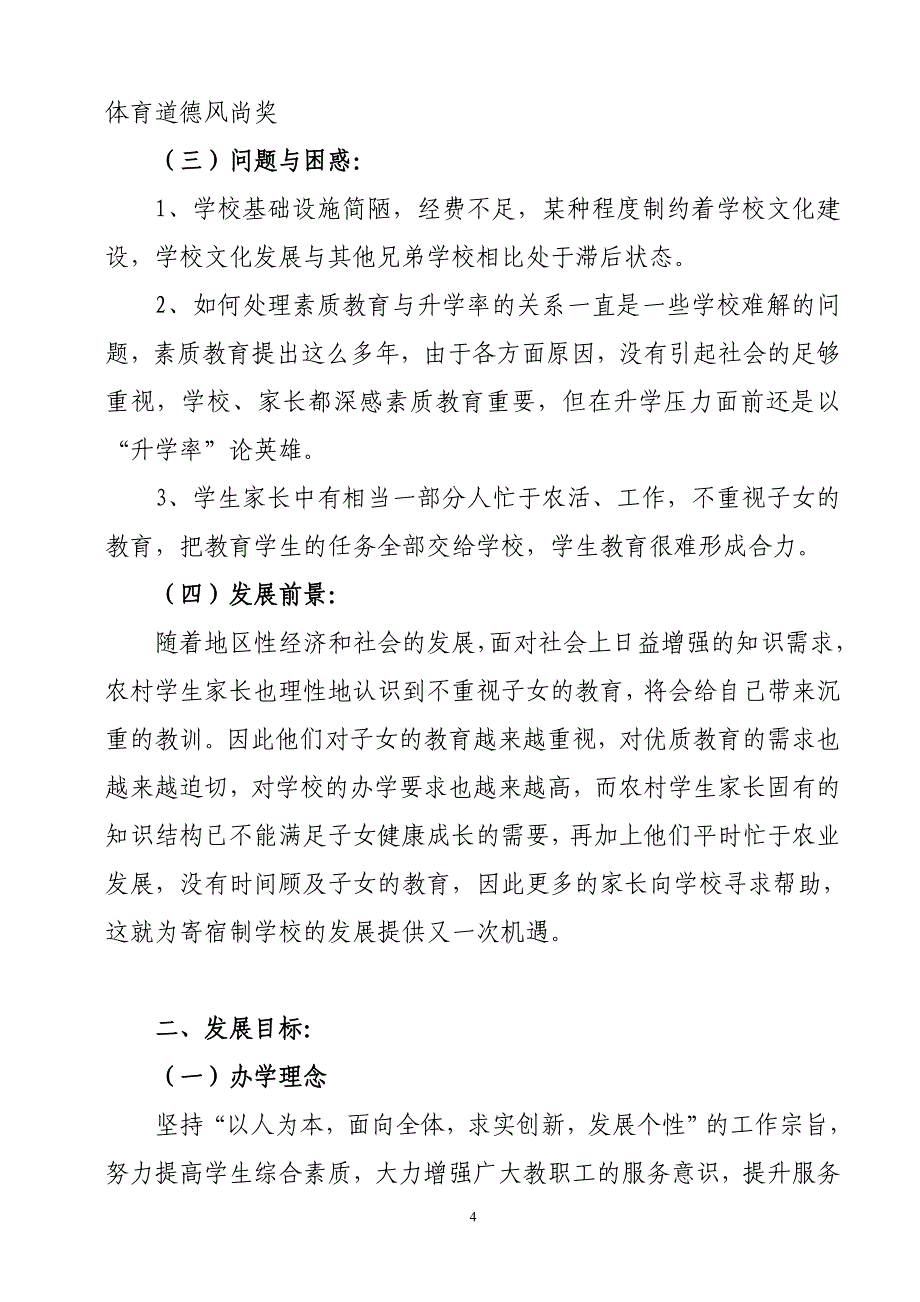 体育道德风尚奖
（三）问题与困惑：
1、学校基础设施简陋，经费不足，某种程度制约着学校文化建
设，学校文化发展与其他兄弟学校相比处于滞后状态。
2、如何处理素质教育与升学率的关系一直是一些学校难解的问
题，素质教育提出这么多年，由于各方面原因，没有引起社会的足够
重视，学校、家长都深感素质教育重要，但在升学压力面前还是以
“升学率”论英雄。
3、学生家长中有相当一部分人忙于农活、工作，不重视子女的
教育，把教育学生的任务全部交给学校，学生教育很难形成合力。
（四）发展前景：
随着地区性经济和社会的发展，面对社会上日益增强的知识需求，
农村学生家长也理性地认识到不重视子女的教育，将会给自己带来沉
重的教训。因此他们对子女的教育越来越重视，对优质教育的需求也
越来越迫切，对学校的办学要求也越来越高，而农村学生家长固有的
知识结构已不能满足子女健康成长的需要，再加上他们平时忙于农业
发展，没有时间顾及子女的教育，因此更多的家长向学校寻求帮助，
这就为寄宿制学校的发展提供又一次机遇。
二、发展目标：
（一）办学理念
坚持“以人为本，面向全体，求实创新，发展个性”的工作宗旨，
努力提高学生综合素质，大力增强广大教职工的服务意识，提升服务
4